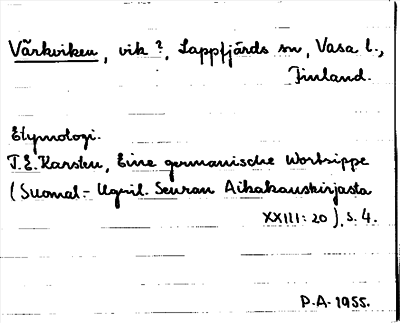 Vårkviken, vik ?, Lappfjärds sn, Vasa l.,
Finland.
Etymologi.
T.E. Karsten, Eine germanische Wortsippe
(Suomal.- Ugril. Seuran Aikakauskirjasta
XXIII: 20), s. 4.
P.A. 1955.